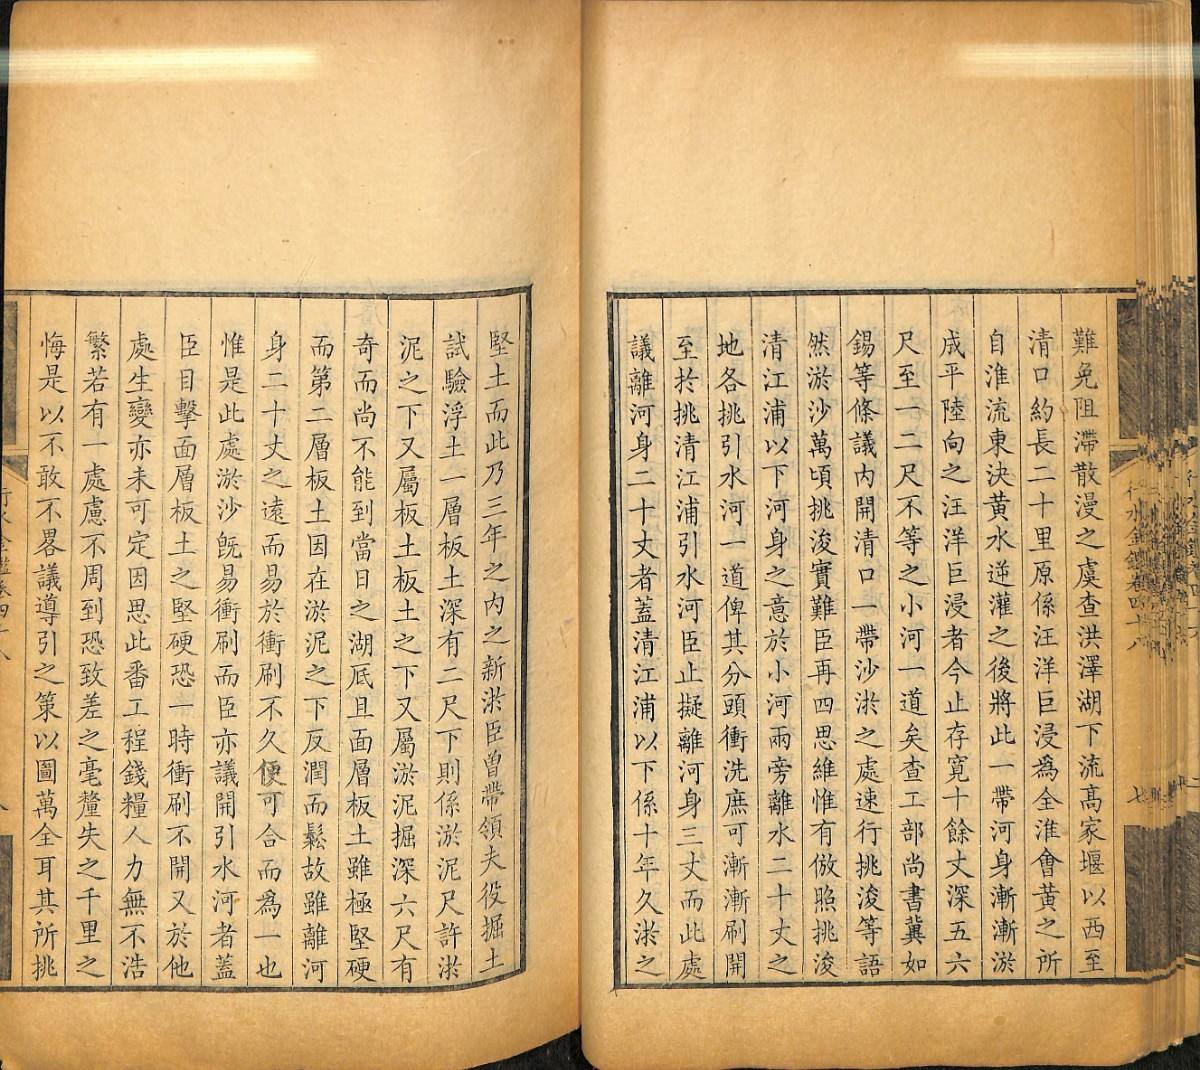 難免阻滯散漫之虞查洪澤湖下流高家堰以西至
清口約長二十里原係汪洋巨浸爲全淮會黃之所
自淮流東決黃水逆灌之後將此一帶河身漸漸淤
成平陸向之汪洋巨浸者今止存寬十餘丈深五六
尺至一二尺不等之小河一道矣查工部尚書冀如
錫等條議內開清口一帶沙淤之處速行挑浚等語
然淤沙萬頃挑浚實難臣再四思維惟有倣照挑浚
清江浦以下河身之意於小河兩旁離水二十丈之
地各挑引水河一道俾其分頭衝洗庶可漸漸刷開
至於挑清江浦引水河臣止擬離河身三丈而此處
議離河身二十丈者蓋清江浦以下係十年久淤之
行水金鑑卷四十八
七
堅土而此乃三年之內之新淤臣曾帶領夫役掘土
試驗浮土一層板土深有二尺下則係淤泥尺許淤
泥之下又屬板土板土之下又屬淤泥掘深六尺有
奇而尚不能到當日之湖底且面層板土雖極堅硬
而第二層板土因在淤泥之下反潤而鬆故雖離河
身二十丈之遠而易於衝刷不久便可合而爲一也
惟是此處淤沙旣易衝刷而臣亦議開引水河者蓋
臣目擊面層板土之堅硬恐一時衝刷不開又於他
處生變亦未可定因思此番工程錢糧人力無不浩
繁若有一處慮不周到恐致差之毫釐失之千里之
悔是以不敢不畧議導引之策以圖萬全耳其所挑
行水金鑑卷四十八
八